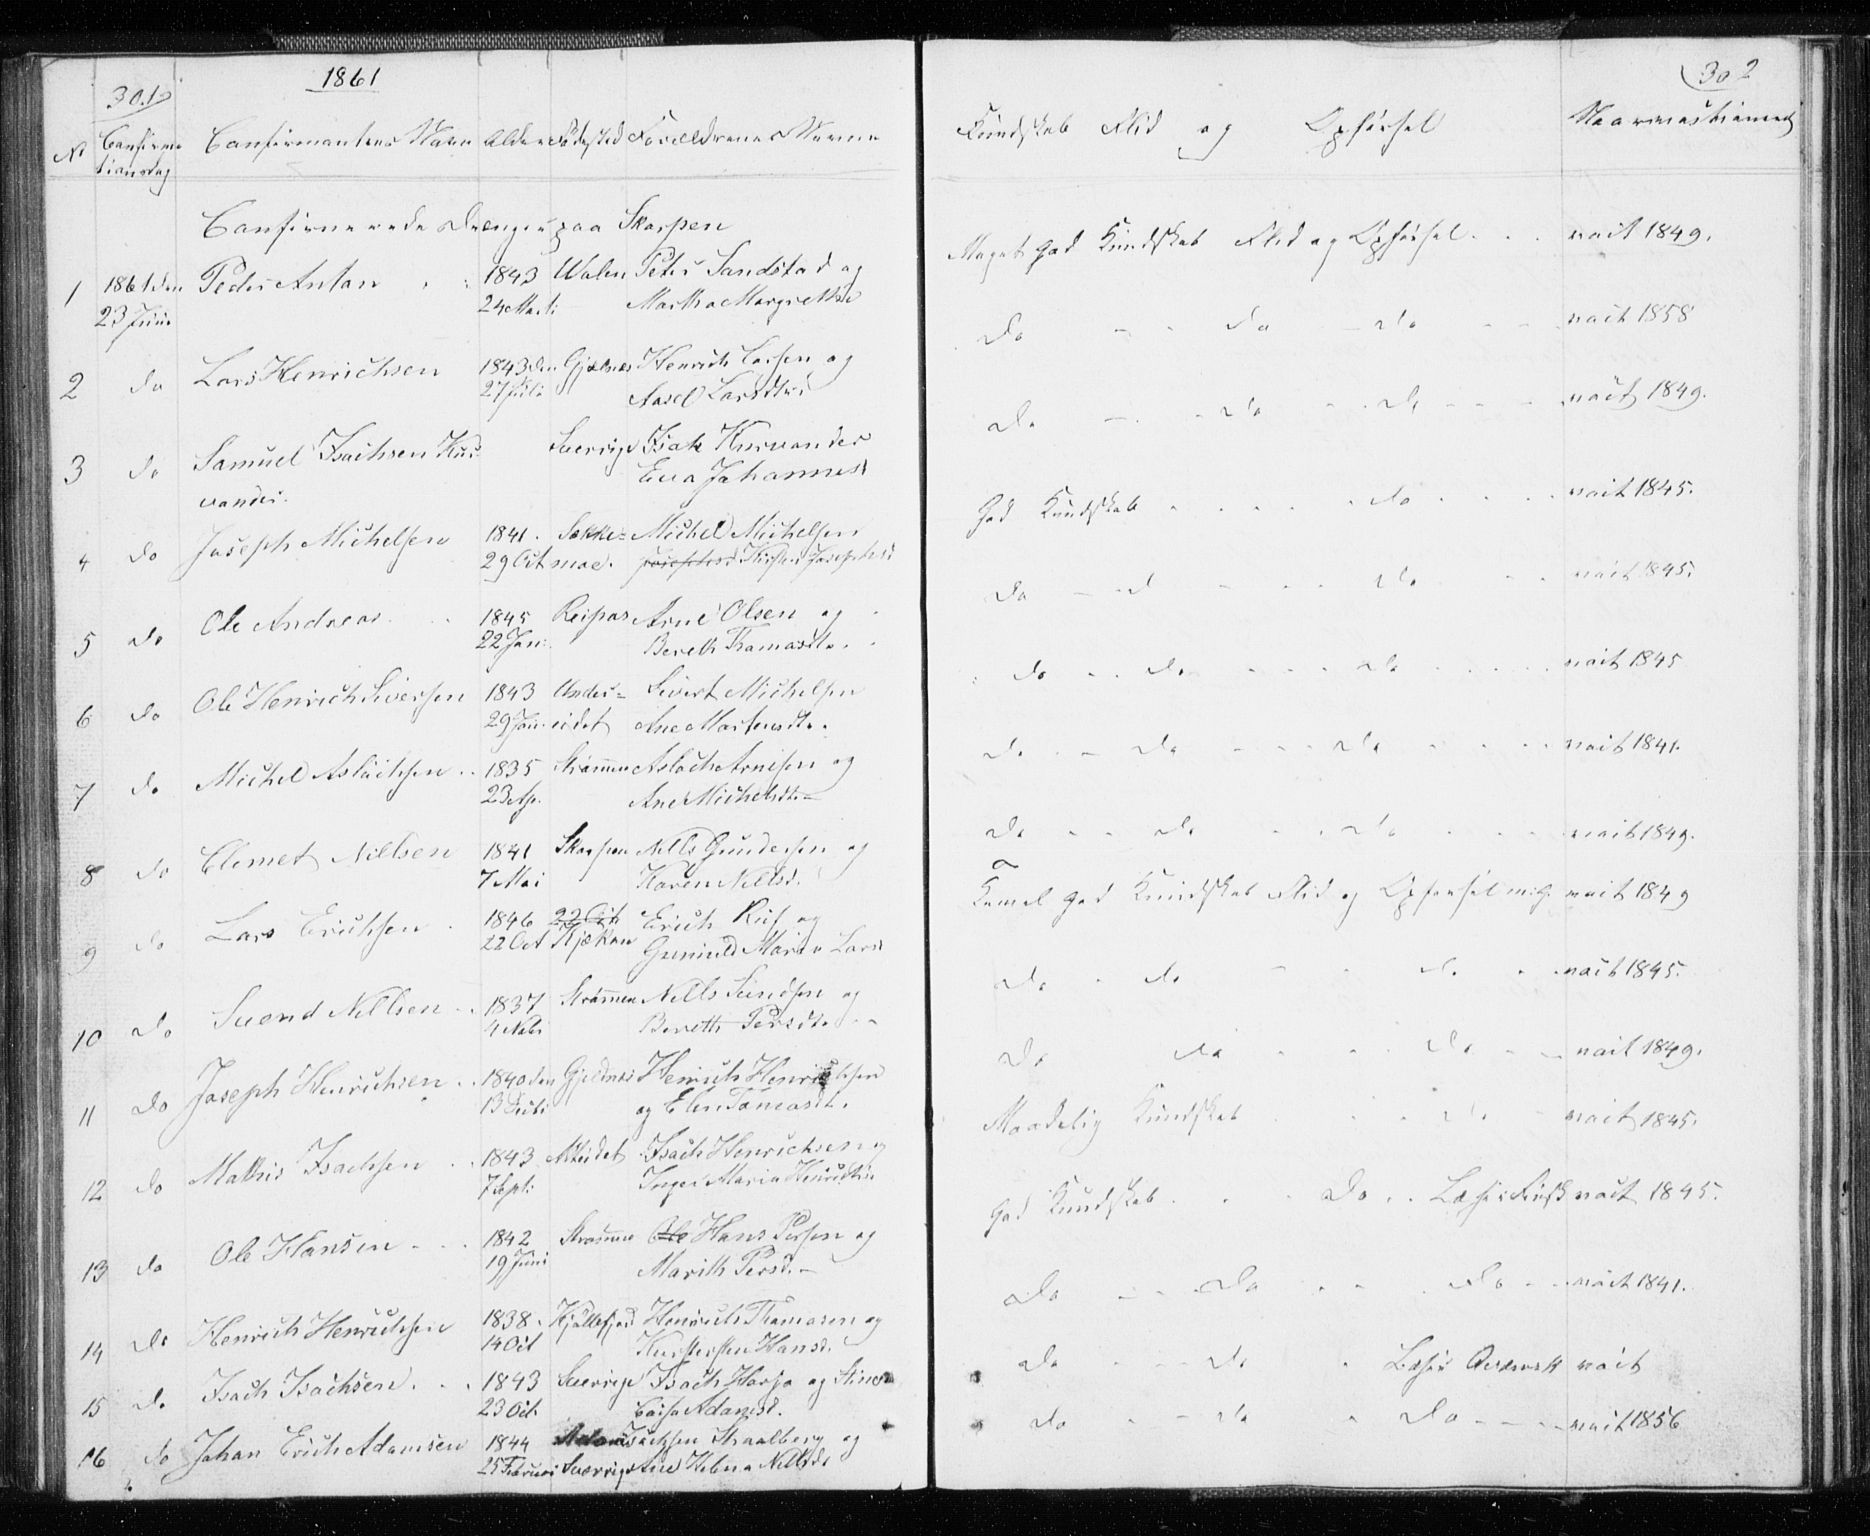 301
1861
302
No Confirmationsdag Confirmantens Navn Alder Fødested Forældrenes Navne
Kundskab Flid og Opførsel
Naar vaccineret
Confirmerede Drenge paa Skarpen
1 1861 den 23 Juni Peder Anton 1843 24 Marti Peter Sandstad og Martha Margrethe
Meget god Kundskab Flid og Opførsel vait 1849.
2 do Lars Henrichsen 1843 den 27 Juli Henrich Larsen og Larsdtr
do do do vait 1858
3 do Samuel Isachsen Kurvander Sverrige Isak Kurvander Eva Johannesd
do do do vait 1849.
4 do Joseph Michelsen 1841. 29 Oct Michel Michelsen Josephsd
God Kundskab do vait 1845.
5 do Ole Andreas 1845 22 Jan: Reipas Arne Olsen og Bereth Thomasdt.
do d do vait 1845.
6 do Ole Henrich Siversen 1843 29 Jan: Undereidet Sivert Michelsen Ane Mortensdt.
do do do vait 1845
7 do Michel Aslachsen 1835 23 Ap. Strømmen Aslach Arnesen og Ane Michelsdt.
do do do vait 1841.
8 do Clemet Nillsen 1841 7 Mai Skarpen Nills Gundersen og Karen Nillsd.
do do do vait 1849.
9 do Lars Erichsen 1846 22 Oct 22 Oct Erich og Gunnild Maria Larsd
god Kundskab Flid og Opførsel vait 1849
10 do Svend Nillsen 1837 Strømmen Nills Svendsen og Bereth Persdt.
do do do vait 1845.
11 do Joseph Henrichsen 1840 den 13 Henrich Henrichsen og Elen Tomasdt.
do do do vait 1849.
12 do Mathis Isachsen 1843 7 Sept: Isach Henrichsen og Inger Maria Henrichsdtr.
Maadelig Kundskab do vait 1845.
13 do Ole Hansen 1842 19 Juni Strømmen Ole Hans Persen og Marith Persd.
God Kundskab do Læser Finsk vait 1845.
14 do Henrich Henrichsen 1838. 14 Oct Kjøllefjord Henrich Thomasen og Hansd.
do do do vait 1841.
15 do Isach Isachsen. 1843 23 Oct. Sverrige Isach og Stina Caisa Adamsd.
do do Læser vait
16 do Johan Erich Adamsen 1844 25 Februari Sverrige Adam Isachsen Straalberg og Ane Helena Nillsdt
do do do vait 1856